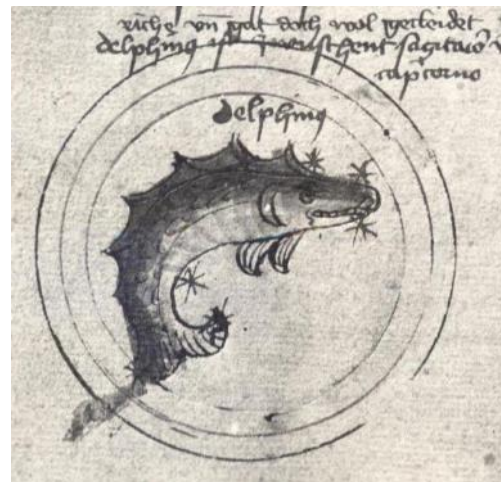 riche vn̄ gat doch wol gecleidet
delphinus ist zwuschent sagitario v
capcorno
delphinus